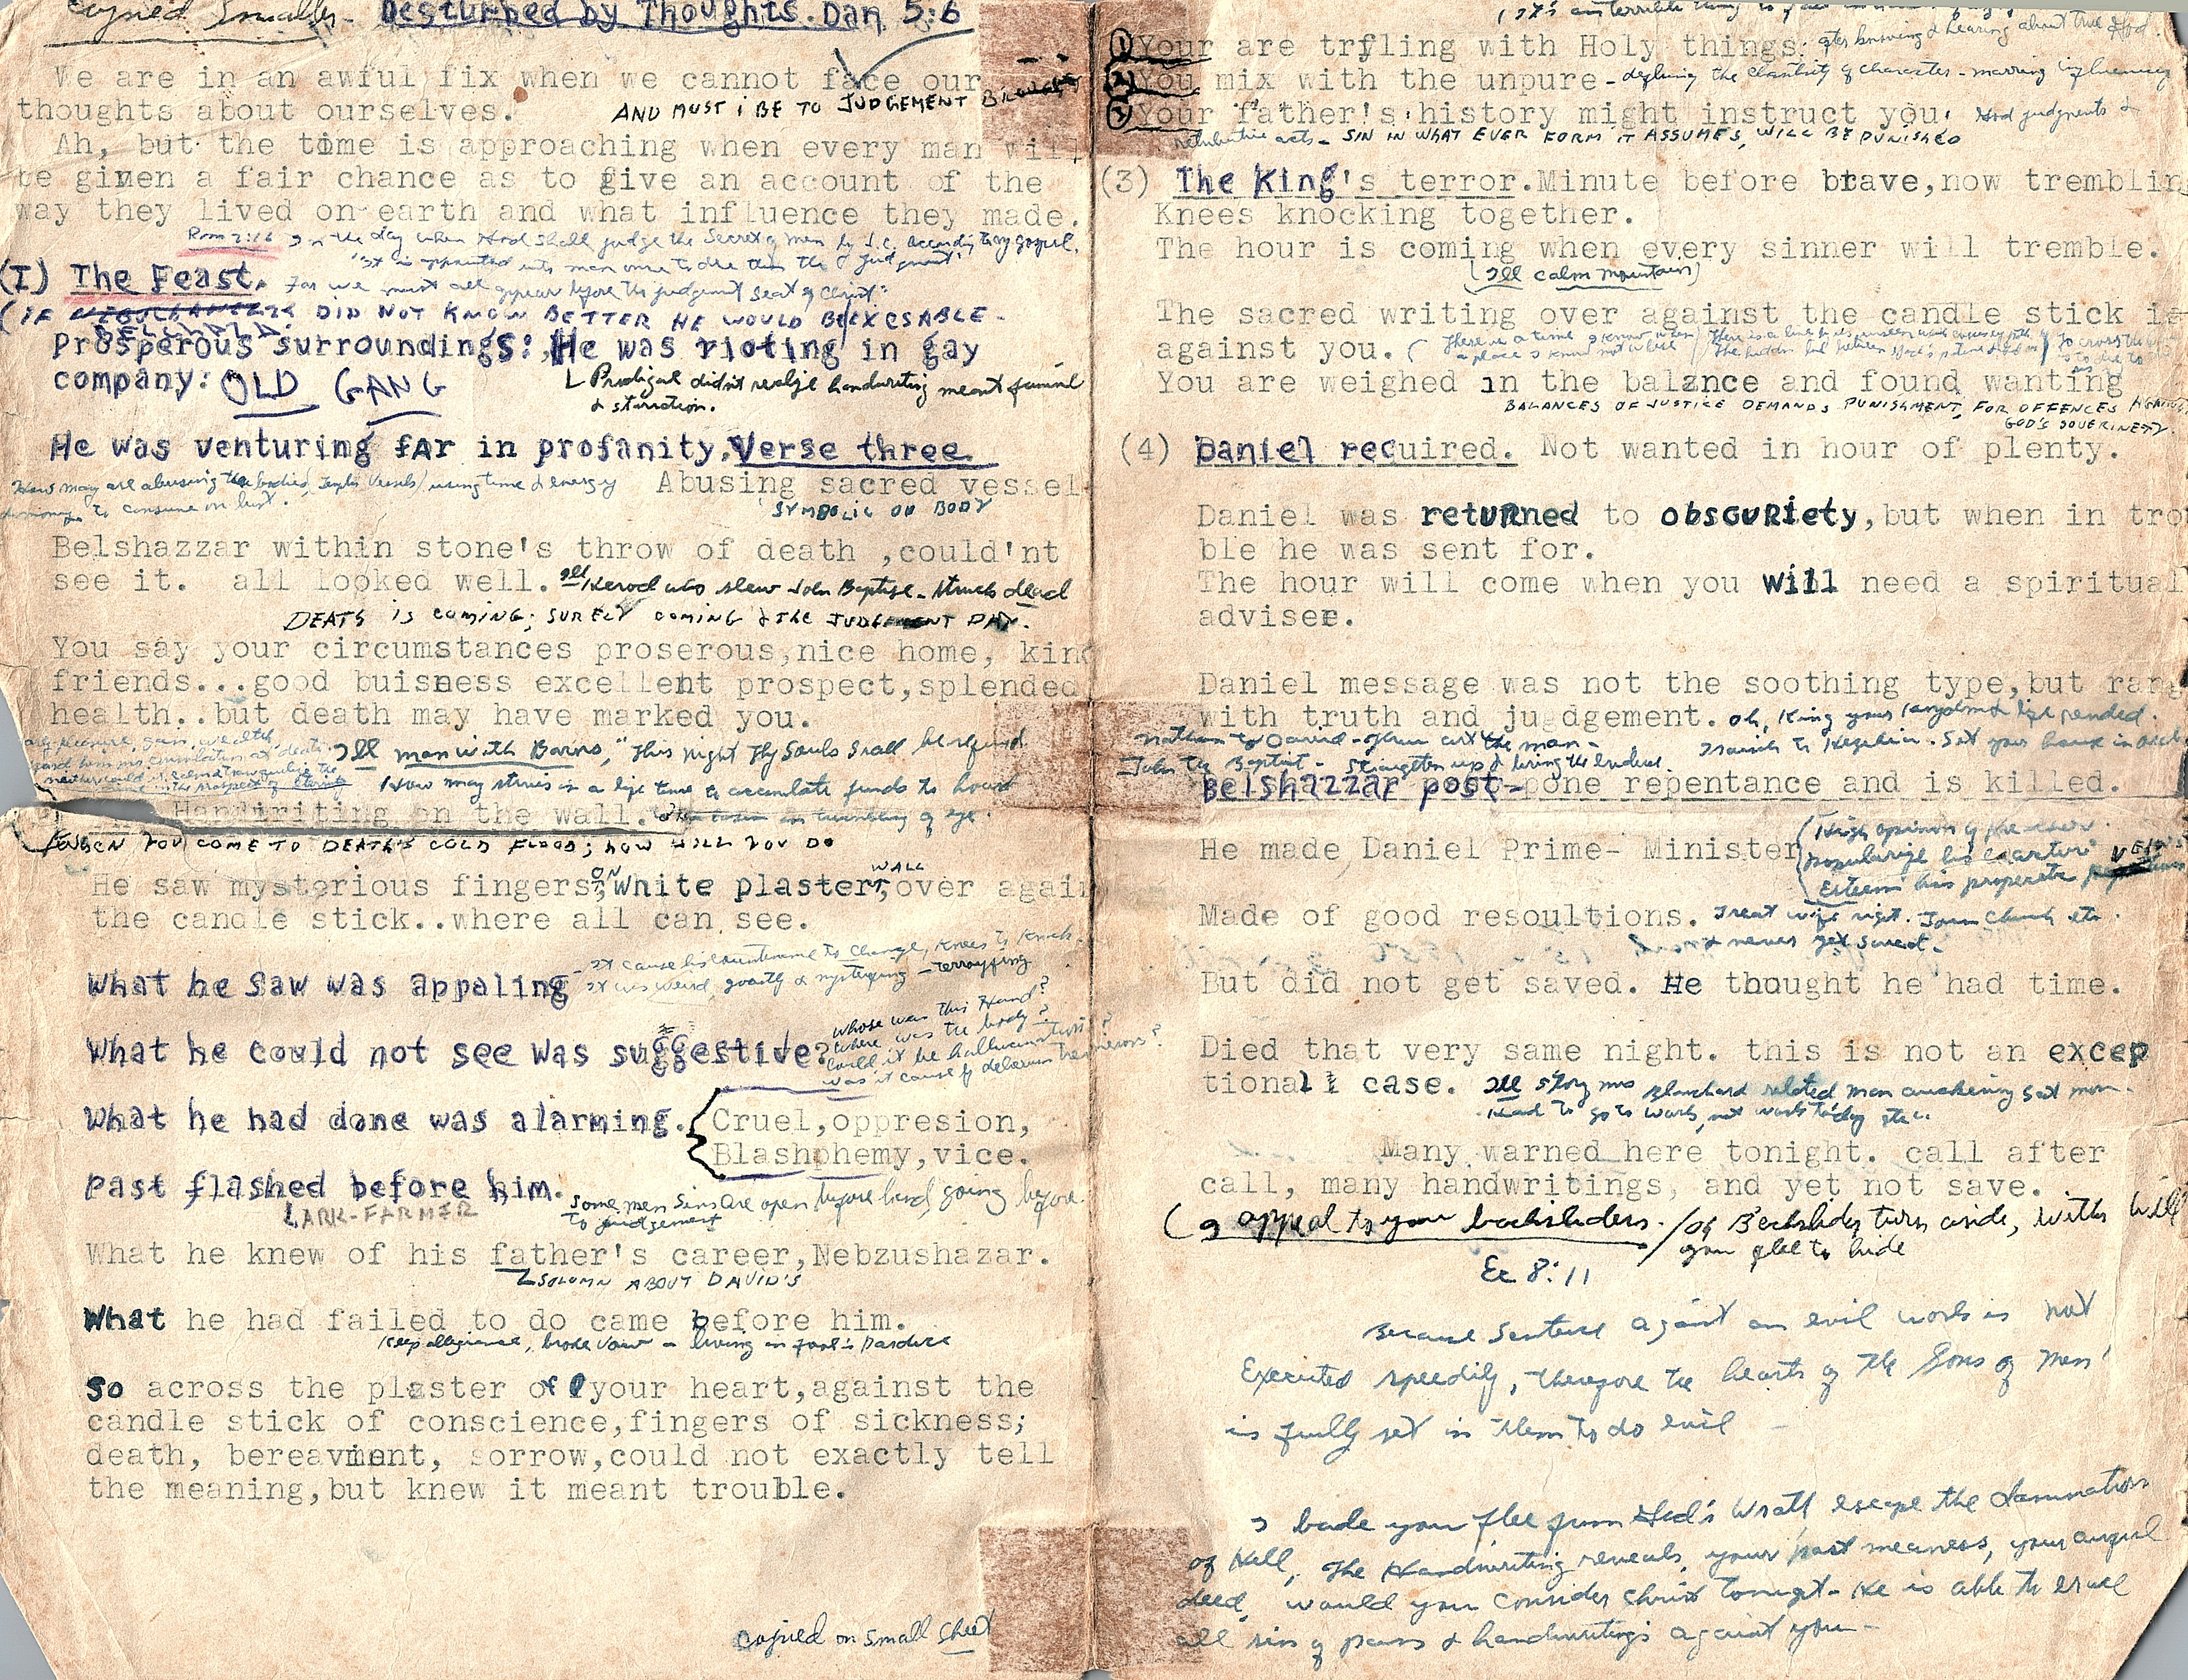 copied smaller- Desturbed by Thoughts. Dan 5:6
We are in an awful fix when we cannot face our
thoughts about ourselves.
AND MUST i BE TO JUDGEMENT
Ah, but the time is approaching when every man will
be given a fair chance as to give an account of the
way they lived on earth and what influence they made.
Rom 2:16 In the day when God shall judge the Secret of men by J.C. according to my gospel.
"It is appointed unto man once to die then the judgment."
(I) The Feast. For we must all appear before the judgement seat of Christ"
(IF DID NOT KNOW BETTER HE WOULD BE EXCSABLE-
BELSHAZZAR
Prosperous surroundings: He was rioting in gay
company: OLD GANG
Prodigal didn't realize handwriting meant famine
& starvation.
He was venturing fAr in profanity. Verse three
How many are abusing the bodies, Temples Vessels/ using time & energy
Abusing sacred vessel
& money to consume on lust.
SYMBOLIC OU BODY
Belshazzar within stone's throw of death ,could'nt
see it. all looked well. Ill Herod who slew John Baptise - struck dead
DEATH IS COMING; SURELY COMING & THE JUDGEMENT DAY.
You say your circumstances proserous,nice home, kind
friends...good buisness excellent prospect,splended
health..but death may have marked you.
Ill man with Barns, "This night Thy Souls shall be required
How many strives in a life time to accumlate funds to hoard
Handwriting on the wall. in twinkling of eye.
WHEN YOU COME TO DEATH'S COLD FLOOD; HOW WILL YOU DO
He saw mysterious fingers, ON White plaster, WALL over again
the candle stick..where all can see.
What he saw was appaling - It cause his countenance to Change, Knees to Knock.
It was weird, goastly & mystifying - terrorfying
What he could not see was suggestive?
whose was this Hand?
where was the body?
Could it be hallucination?
was it cause of delerium tremens?
What he had done was alarming. Cruel,oppresion,
Blashphemy,vice.
Past flashed before him.
LARK-FARMER
some men Sins Are open before hand, going before
to judgement
What he knew of his father's career,Nebzushazar.
SOLOMN ABOUT DAVID'S
What he had failed to do came before him.
Keep allegiance, broke vow - living in fool's Pardice
So across the plaster of your heart,against the
candle stick of conscience,fingers of sickness;
death, bereavment, sorrow,could not exactly tell
the meaning,but knew it meant trouble.
copied on small sheet
(1) Your are trfling with Holy things. after knowing & hearing about true God.
(2) You mix with the unpure - defiling the chastity of character - marring influences
(3) Your father's history might instruct you. God judgments &
retributive acts - SIN IN WHAT EVER FORM IT ASSUMES, WILL BE PUNISHED
(3) The King's terror.Minute before brave,now tremblin
Knees knocking together.
The hour is coming when every sinner will tremble.
(Ill calm mountain)
The sacred writing over against the candle stick is
against you. (There is a time I know not when
a place I know not where
There is a line by us unseen
The hidden line between God's patience
You are weighed in the balance and found wanting
BALANCES OF JUSTICE DEMANDS PUNISHMENT, FOR OFFENCES AGAINST
GOD'S SOVERINETY.
(4) Daniel required. Not wanted in hour of plenty.
Daniel was retuRned to obscuRiety,but when in trou
ble he was sent for.
The hour will come when you will need a spiritual
adviser.
Daniel message was not the soothing type,but rang
with truth and ju dgement. oh, King your kingdom & life ended.
Nathan to David - Thou art the man -
Isaiah to Hezekia. Set your house in order
John the Baptist - Straighten up &
Belshazzar post-pone repentance and is killed.
He made Daniel Prime- Minister
(High opinion of preacher.
Popularize his
Esteem his
Made of good resoultions. Treat wife right. Join Church etc.
& never get saved.
But did not get saved. He thought he had time.
Died that very same night. this is not an excep
tional case. Ill story mrs Blanchard related man awakening Sat morn.
Had to go to work, not work today etc.
Many warned here tonight. call after
call, many handwritings, and yet not save.
(I appeal to your backsliders. / Oh Backslider turn aside, wither will
you flee to hide
Ec 8:11
Because Sentence against an evil work is not
Executed speedily, therefore the hearts of the Sons of Men
is fully set in them to do evil
I bade you flee from God's Wrath escape the damnation
of Hell, The Handwriting reveals, your past meaness, your awful
deed, would you consider Christ tonight - He is able to erase
all sins of pains & handwritings against you -